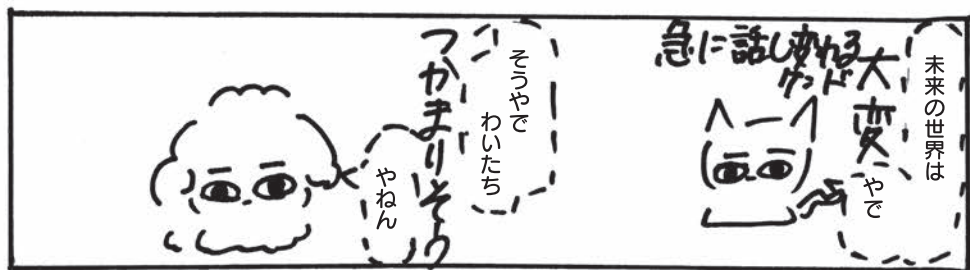 未来の世界は
大変
やで
急に話し変わる
ケンド
そうやで
わいたち
つかまりそウ
やねん